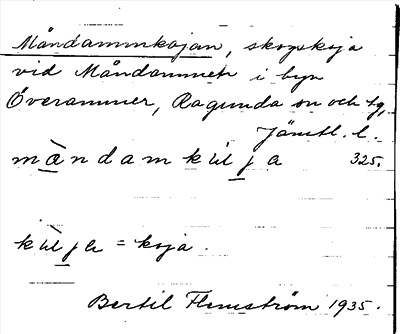 Måndammkojan, skogskoja
vid Måndammen i byn
Överammer, Ragunda sn och tg,
Jämtl. l.
màndamkùlja 325.
kùlje = koja.
Bertil Flemström 1935.